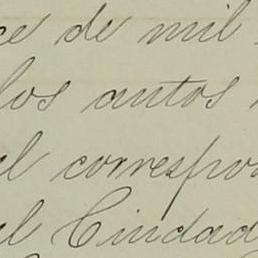 ce de mil
los autos
el correspon
el Ciudad